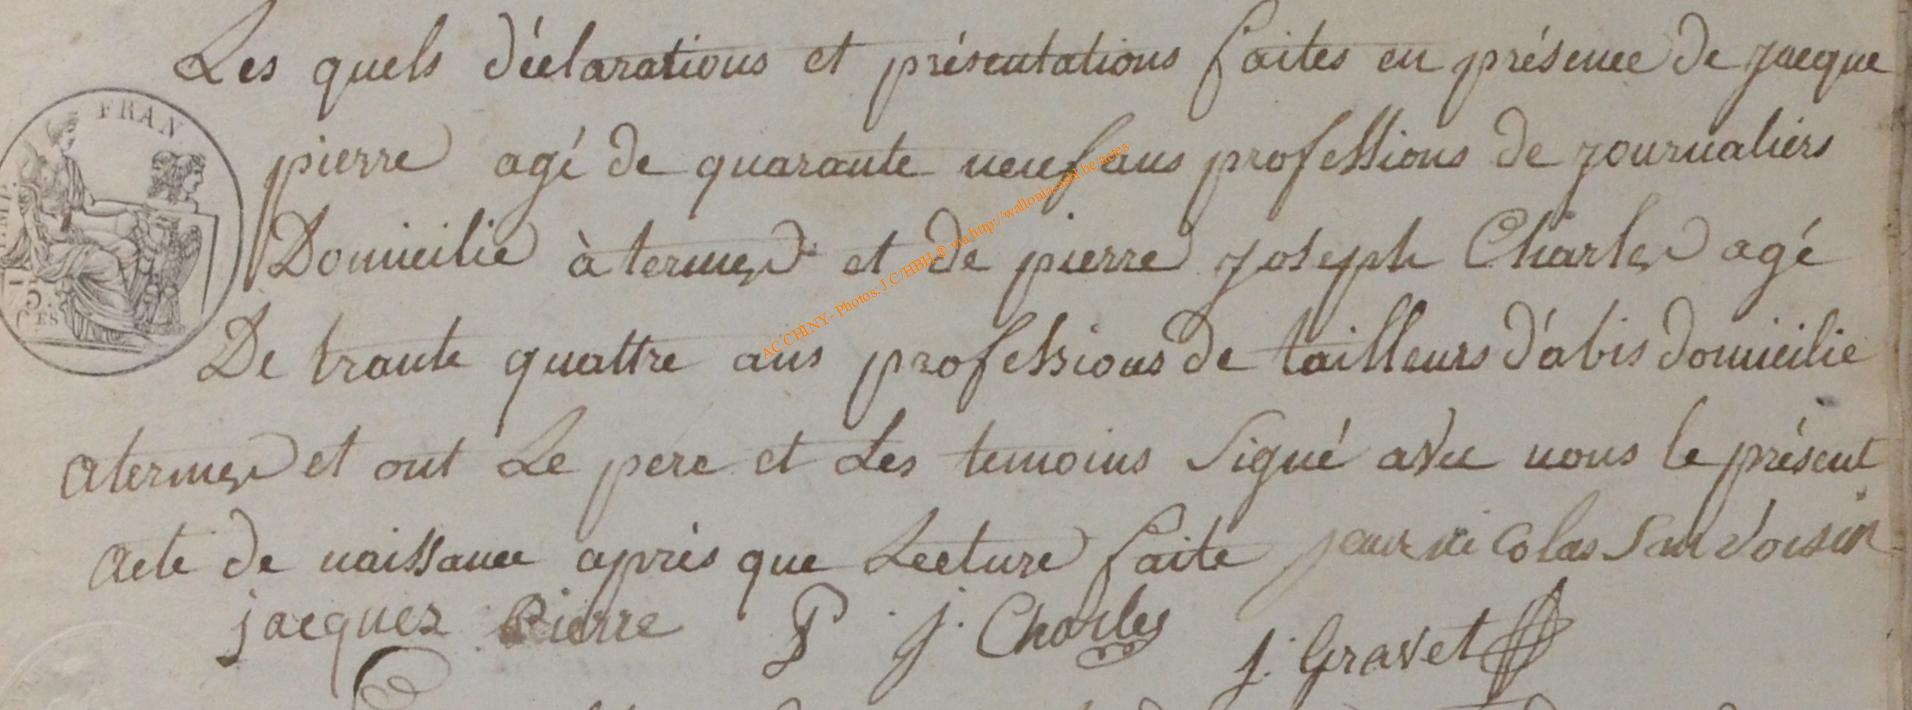 Les quels déclarations et présentations faites en présence de jacque
FRAN
pierre agé de quarante neuf ans professions de journaliers
Domicilie à termes et de pierre joseph Charles agé
75.
CES
De trante quattre ans professions de tailleurs d'abis domicilie
a termes et ont Le pere et Les temoins Signé avec nous le présent
acte de naissance après que Lecture faite jean nicolas Sanvoisin
jacques Pierre P. j. Charles j. Gravet
ACCHINY- Photos. J.C HBH ® via http://wallonia-asbl.be/actes